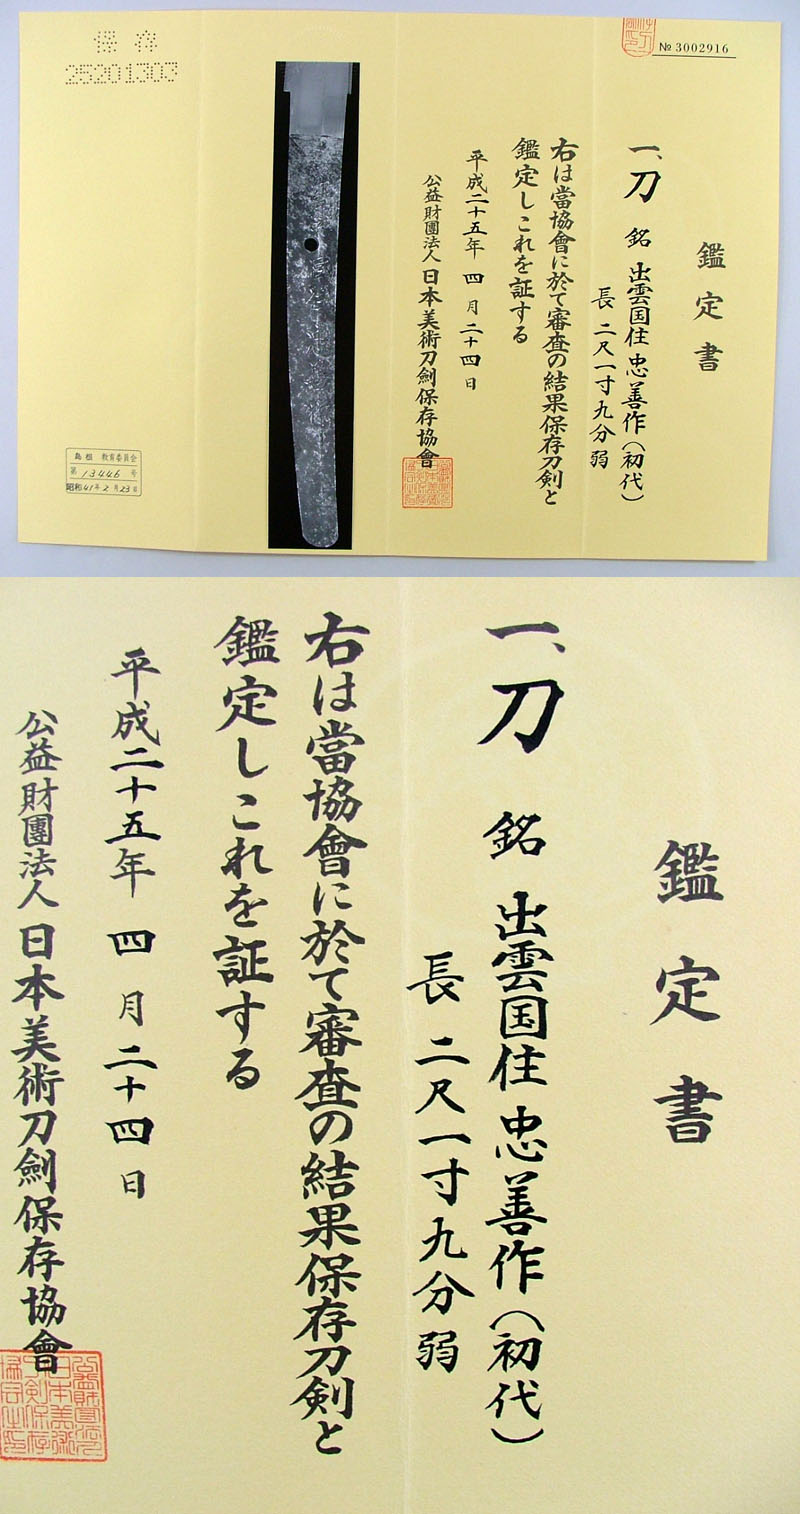 № 3002916
鑑定書
一、刀 銘 出雲国住忠善作（初代）
長 二尺一寸九分弱
右は當協會に於て審査の結果保存刀剣と
鑑定しこれを証する
平成二十五年四月二十四日
公益財團法人日本美術刀劍保存協會
保存
25201303
島根 教育委員会
第 13449 号
昭和41年2月23日
鑑定書
一、刀 銘 出雲国住忠善作（初代）
長 二尺一寸九分弱
右は當協會に於て審査の結果保存刀剣と
鑑定しこれを証する
平成二十五年四月二十四日
公益財團法人日本美術刀劍保存協會